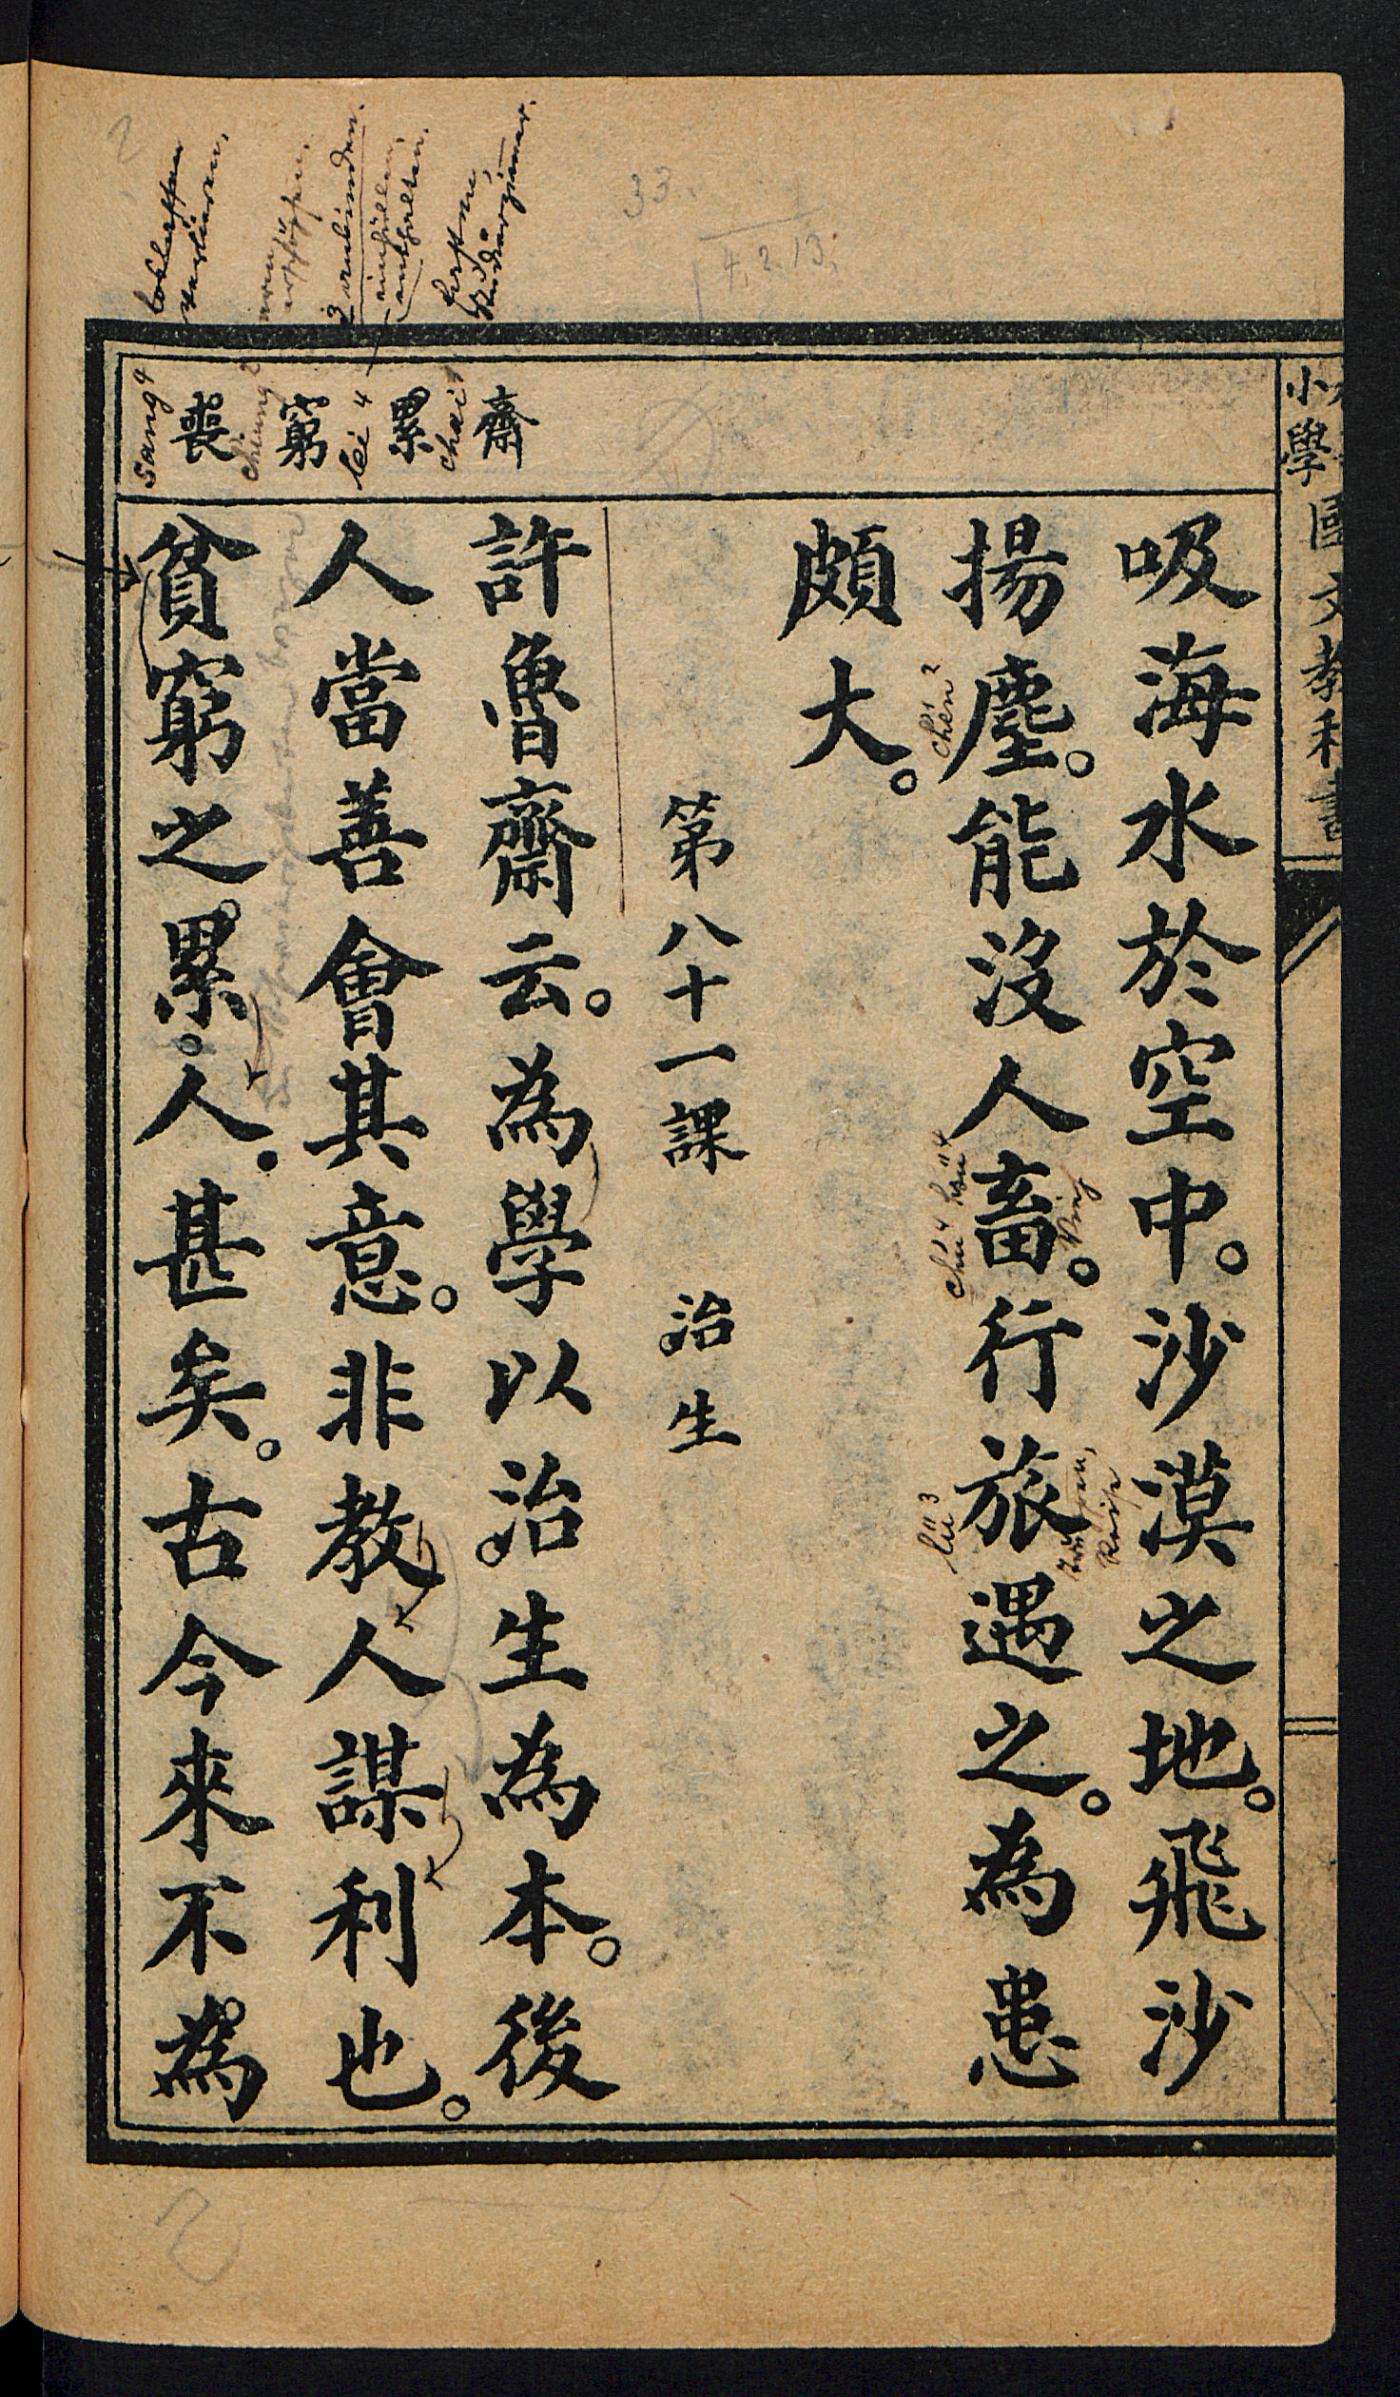 小學國文教科書
吸海水於空中。沙漠之地。飛沙
揚塵。能沒人畜。行旅遇之。為患
頗大。
第八十一課 治生
許魯齋云。為學以治生為本。後
人當善會其意。非教人謀利也。
貧窮之累。人甚矣。古今來不為
齋
累
窮
喪
chai
lei 4
chiung 2
sang 4
chén 2
hsü 4
chu 4
lü 3
33.
4.2.13.